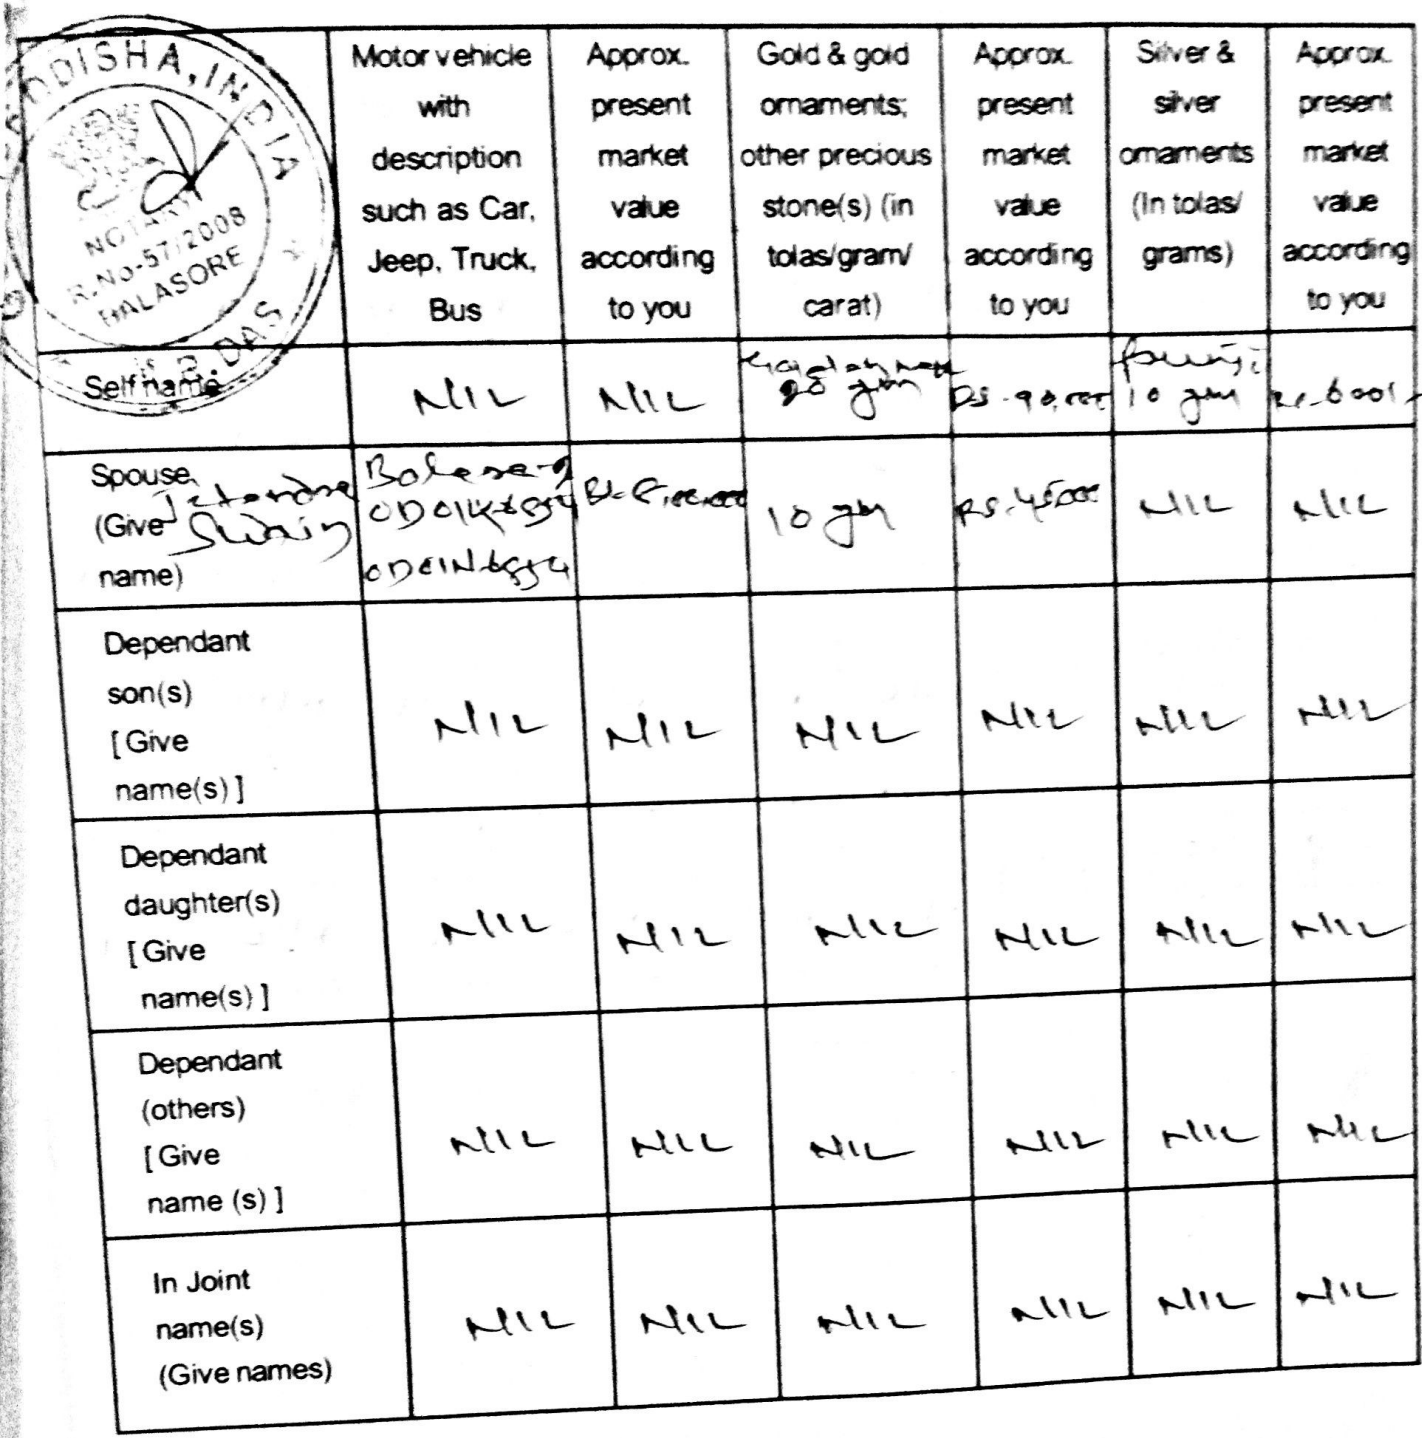 ODISHA, INDIA
NOTARY
R.No-57/2008
BALASORE
B. DAS
Motor vehicle
with
description
such as Car,
Jeep, Truck,
Bus
Approx.
present
market
value
according
to you
Gold & gold
ornaments;
other precious
stone(s) (in
tolas/gram/
carat)
Approx.
present
market
value
according
to you
Silver &
silver
ornaments
(In tolas/
grams)
Approx.
present
market
value
according
to you
Self name
NIL
NIL
20 gm
Rs-90,000
10 gm
Spouse
(Give
name)
Swain
10 gm
Rs-45000
NIL
NIL
Dependant
son(s)
[ Give
name(s) ]
NIL
NIL
NIL
NIL
NIL
NIL
Dependant
daughter(s)
[ Give
name(s) ]
NIL
NIL
NIL
NIL
NIL
NIL
Dependant
(others)
[ Give
name (s) ]
NIL
NIL
NIL
NIL
NIL
NIL
In Joint
name(s)
(Give names)
NIL
NIL
NIL
NIL
NIL
NIL